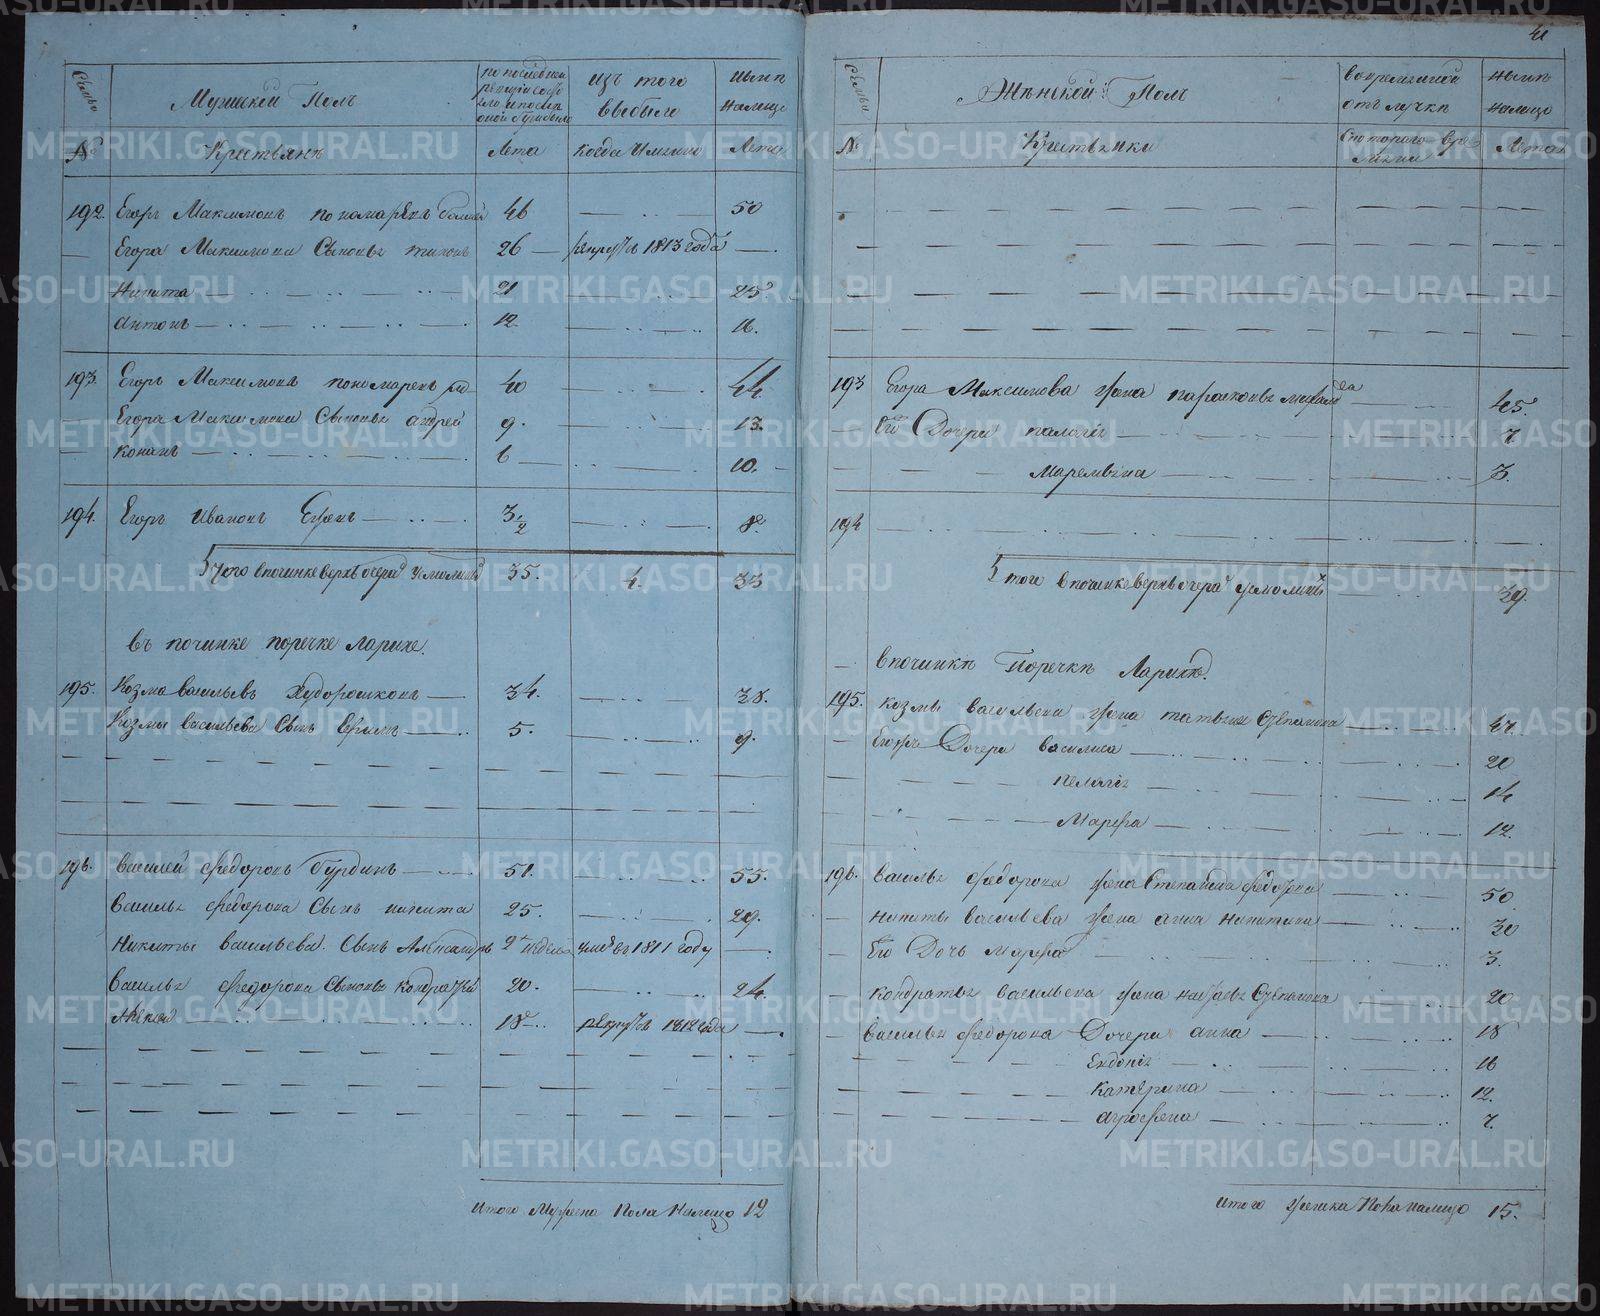 41
Семьи
Мужеской Полъ
по последней ревизіи состояло и после оной прибыло
изъ того выбыло
ныне налицо
№
Крестьянъ
Лета
когда имянно
Лета
192. Егоръ Максимовъ пономаревъ 46 50
Егора Максимова Сыновья тихонъ 26 рекрутъ 1813 года
Никита 21 25
Антонъ 12 16.
193. Егоръ Максимовъ пономаревъ 40 44.
Егора Максимова Сыновья андрей 9. 13.
Кононъ 6 10.
194. Егоръ Ивановъ 3 1/2 8
Итого в починке верхъ 35. 4. 33
въ починке поречке Ларихе.
195. Козма васильевъ Худорошковъ 34. 38.
Козмы васильева Сынъ ефимъ 5. 9.
196. Василей Федоровъ Бурдинъ 51. 55.
Василья Федорова Сынъ никита 25. 29.
Никиты васильева Сынъ Александръ 2 недель умре въ 1811 году
Василья Федорова Сыновья Кондратей 20. 24.
Алексей 18 рекрутъ 1812 года
Итого Мужеска Пола Налицо 12
Семьи
Женской Полъ
во временной отлучке
ныне налицо
№
Крестьянки
Съ котораго времяни
Лета
193 Егора Максимова жена парасковья 45.
Его Дочери палагія 7
Маремьяна 3.
194
Итого в починке верхъ 39.
в починке Поречке Ларихе.
195. козмы васильева жена татьяна Степанова 47.
Дочери василиса 20
пелагія 14
Марфа 12.
196. Василья Федорова жена Степанида Федорова 50
никиты васильева жена анна никитина 30
Его Дочь марфа 3.
Кондратья васильева жена Степанова 20
Василья Федорова Дочери анна 18
Евдокія 16
Катерина 12.
аграфена 7.
Итого женска Пола налицо 15.
METRIKI.GASO-URAL.RU